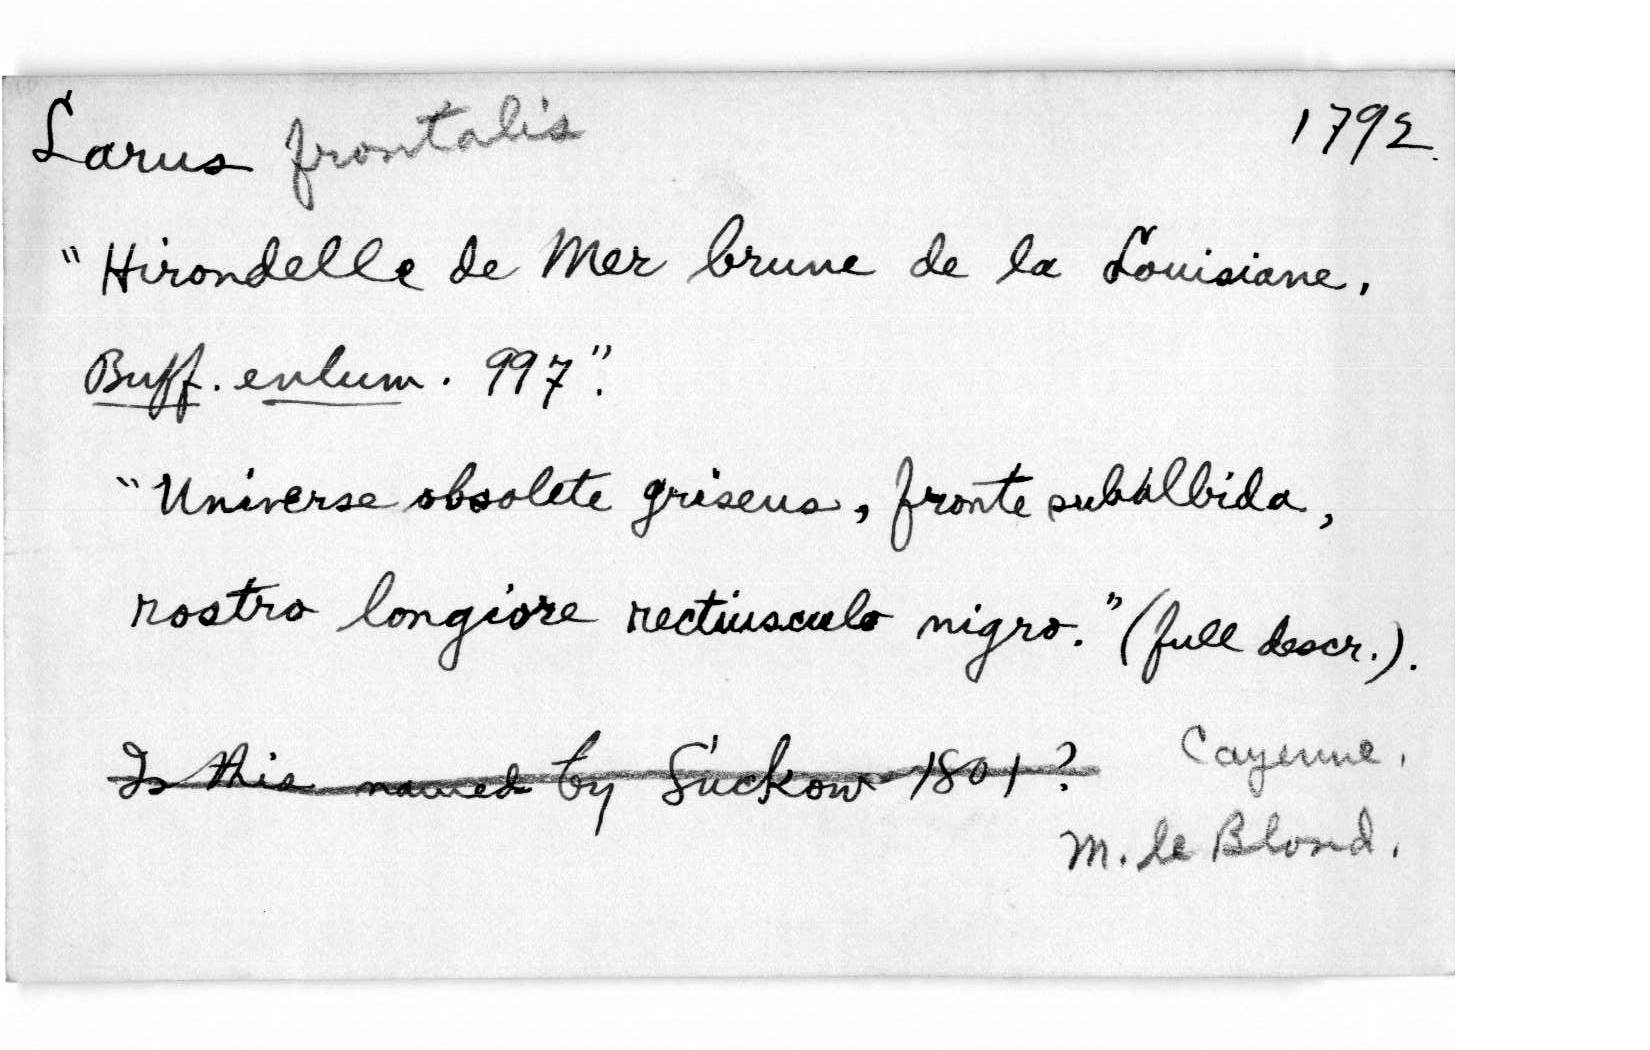 Larus frontalis 1792.
"Hirondelle de Mer brune de la Louisiane.
Buff. enlum. 997".
"Universe obsolete griseus, fronte subalbida,
rostro longiore rectiusculo nigro." (full descr.).
Is this named by Suckow 1801? Cayenne.
M. le Blond.